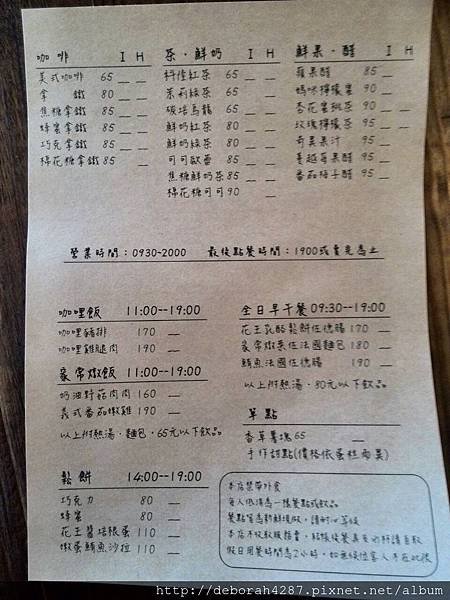 咖 啡 I H
美式咖啡 65
拿 鐵 80
焦糖拿鐵 85
蜂蜜拿鐵 85
巧克拿鐵 85
棉花糖拿鐵 85
茶·鮮奶 I H
錫倫紅茶 65
茉莉綠茶 65
碳培烏龍 65
鮮奶紅茶 80
鮮奶綠茶 80
可可歐蕾 85
焦糖鮮奶茶 85
棉花糖可可 90
鮮果·醋 I H
蘋果醋 85
媽咪檸檬蜜 90
杏花蜜斑茶 90
玫瑰檸檬茶 95
奇異果汁 95
蔓越莓果醋 95
番茄梅子醋 95
營業時間:0930-2000 最後點餐時間:1900或賣完為止
咖哩飯 11:00--19:00
咖哩豬排 170
咖哩雞腿肉 190
家常燉飯 11:00--19:00
奶油野菇肉肉 160
義式番茄燉雞 190
以上附熱湯·麵包·65元以下飲品
鬆餅 14:00--19:00
巧克力 80
蜂蜜 80
花王醬培根蛋 110
燉蛋鮪魚沙拉 110
全日早午餐 09:30--19:00
花王乳酪鬆餅佐德腸 170
家常燉菜佐法國麵包 180
鮪魚法國佐德腸 190
以上附熱湯·80元以下飲品
單點
香草薯塊 65
手作甜點(價格依蛋糕而異)
本店禁帶外食
每人低消為一樣餐點或飲品
餐點皆為新鮮現做，請耐心等候
http://deborah4287.pixnet.net/album